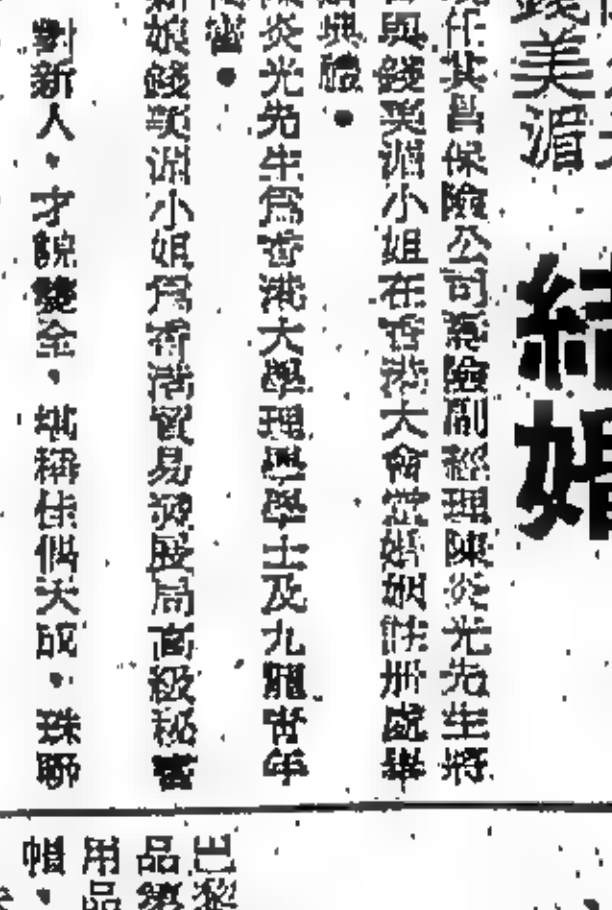 錢美湄
結婚
現任其昌保險公司燕險副經理陳炎光先生將
與錢美湄小姐在香港大會堂婚姻註冊處舉
典禮。
陳炎光先生為香港大學理學學士及九龍青年
新娘錢美湄小姐為香港貿易發展局高級秘書
對新人，才貌雙全，堪稱佳偶天成，珠聯
巴黎
品
用品
帽，